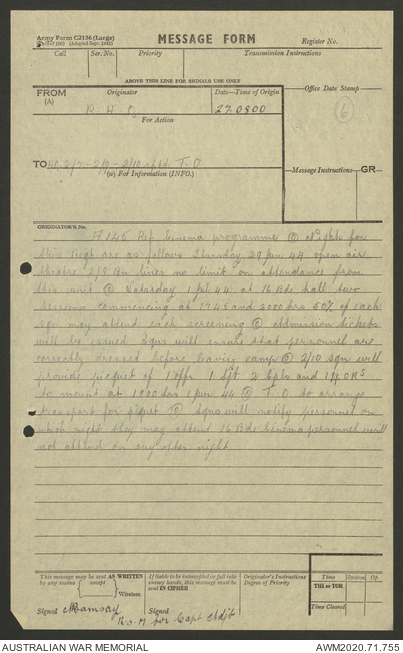 Army Form C2136 (Large)
(Adapted Sept. 1942)
MESSAGE FORM
Register No.
Call
Ser. No.
Priority
Transmission Instructions
ABOVE THIS LINE FOR SIGNALS USE ONLY
FROM
(A)
Originator
Date—Time of Origin
Office Date Stamp
R. H. Q.
27.0800
(6)
For Action
TO
HQ, 2/7 - 2/8 - 2/10 sqdn T. O
(w) For Information (INFO.)
Message Instructions
GR
ORIGINATOR'S No.
A145 Ref Cinema programme @ Nights for
this regt are as follows Thursday 29 Jun 44 open air
theatre 2/8 Bn lines no limit on attendance from
this unit @ Saturday 1 Jul 44 at 16 Bde hall two
sessions commencing at 1745 and 2000 hrs 50% of each
sqn may attend each screening @ Admission tickets
will be issued sqns will ensure that personnel are
correctly dressed before leaving camp @ 2/10 sqn will
provide picquet of 1 offr 1 Sjt 2 Cpls and 14 ORs
to mount at 1900 hrs 1 Jun 44 @ T. O to arrange
transport for piquet @ Sqns will notify personnel on
which night they may attend 16 Bde Cinema personnel will
not attend on any other night
This message may be sent AS WRITTEN
by any means
except
Wireless
If liable to be intercepted or fall into
enemy hands, this message must be
sent IN CIPHER
Originator's Instructions
Degree of Priority
Time
System
Op.
THI or TOR
Time Cleared
Signed
Ramsay
Signed
R.S.M for Capt Adjt
AUSTRALIAN WAR MEMORIAL
AWM2020.71.755